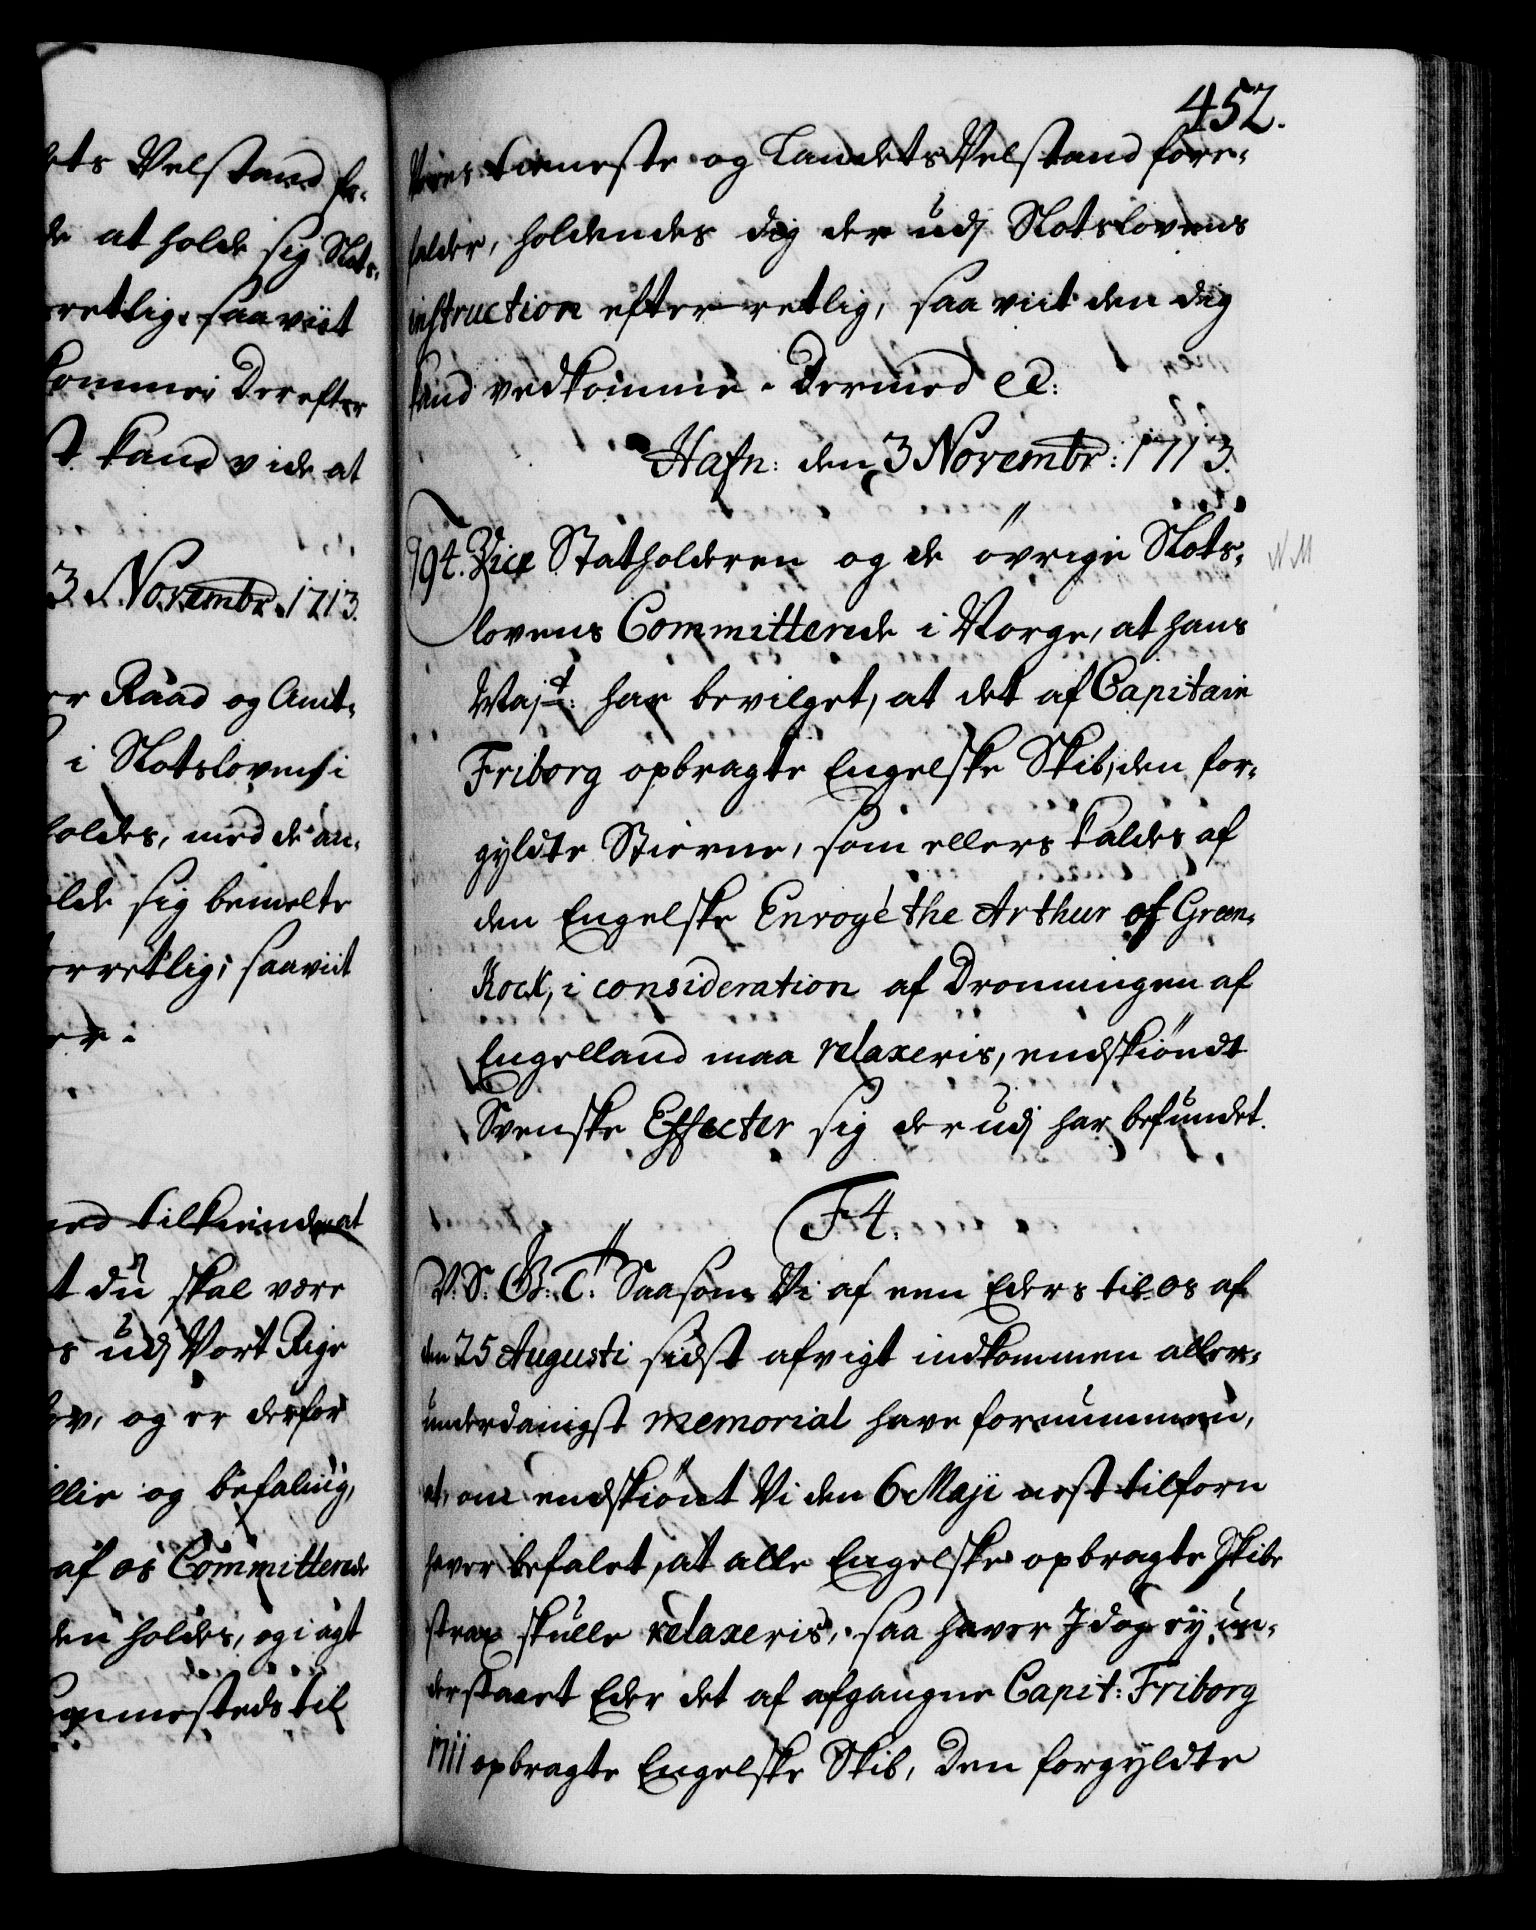 ets Velstand fo-
de at holde sig Slots-
rettig, saa viit
komme; Derefter
kand vide at
3 Novembr. 1713.
er Raad og Amt-
i Slotslovens i
holdes, med de an-
olde sig bemelte
erretlig; saaviit
er.
ed tilkiende, at
t du skal være
os udj Vort Rige
lov, og er derfor
llie og befaling,
af os Committerede
den holdes, og i agt
sammesteds til
452.
Vores tieneste og Landets Velstand fore-
falder, holdendes dig der udj Slotslovens
instruction efterretlig, saa viit den dig
kand vedkomme. Dermed etc:
Hafn: den 3 Novembr: 1713.
794. Vice Statholderen og de övrige Slots-
lovens Committerede i Norge, at hans
Majt: har bevilget, at det af Capitain
Friborg opbragte Engelske Skib, den for-
gyldte Stierne, som ellers kaldes af
den Engelske Enroyé the Arthur of Green-
Rock, i consideration af Dronningen af
Engelland maa relaxeris, endskiöndt
Svenske Effecter sig der udj har befundet.
F4.
V. S. G. T. Saasom Vi af een Eders til os af
den 25 Augusti sidst afvigt indkommen aller-
underdanigst memorial have fornummen,
at, om endskiönt Vi den 6 Maji nest tilforn
haver befalet, at alle Engelske opbragte Skibe
strax skulle relaxeris, saa haver I dog ey un-
derstaaet Eder det af afgangne Capit: Friborg
1711 opbragte Engelske Skib, Den forgyldte